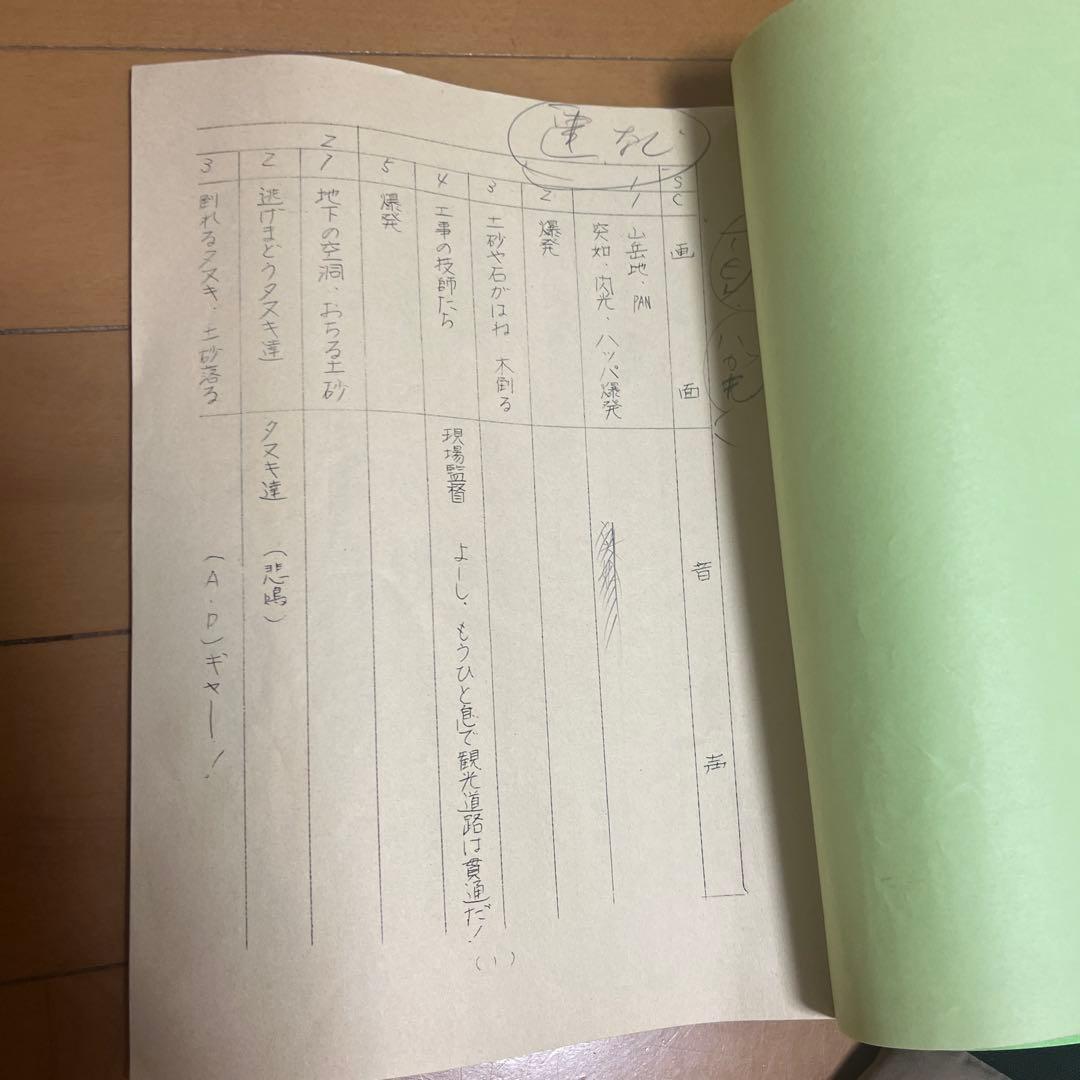 S
C
画面
音声
1
1
山岳地・PAN
突如・閃光・ハッパ爆発
2
爆発
3
土砂や石がはね 木倒る
4
工事の技師たち
現場監督 よーし、もうひと息で観光道路は貫通だ!
5
爆発
2
1
地下の空洞、おちる土砂
2
逃げまどうタヌキ達
タヌキ達 (悲鳴)
3
倒れるタヌキ、土砂落る
(A・D)ギャー!
(1)